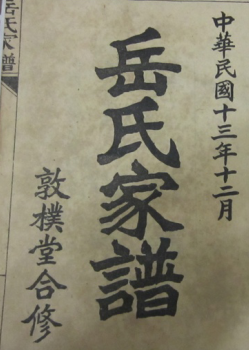 中華民國十三年十二月
岳氏家譜
敦樸堂合修
岳氏家譜